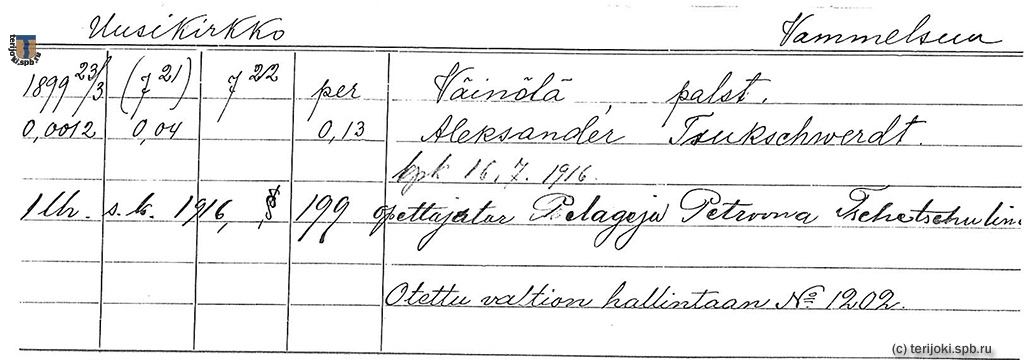 Uusikirkko Vammelsuu
1899 23/3 (7 21) 7 22 per Väinölä, palst.
0,0012 0,04 0,13 Aleksander Tsukschwerdt.
kpk 16.7. 1916.
1 lh. s. k. 1916, § 199 opettajatar Pelageja Petrovna
Otettu valtion hallintaan No 1202.
terijoki.spb.ru
(c) terijoki.spb.ru